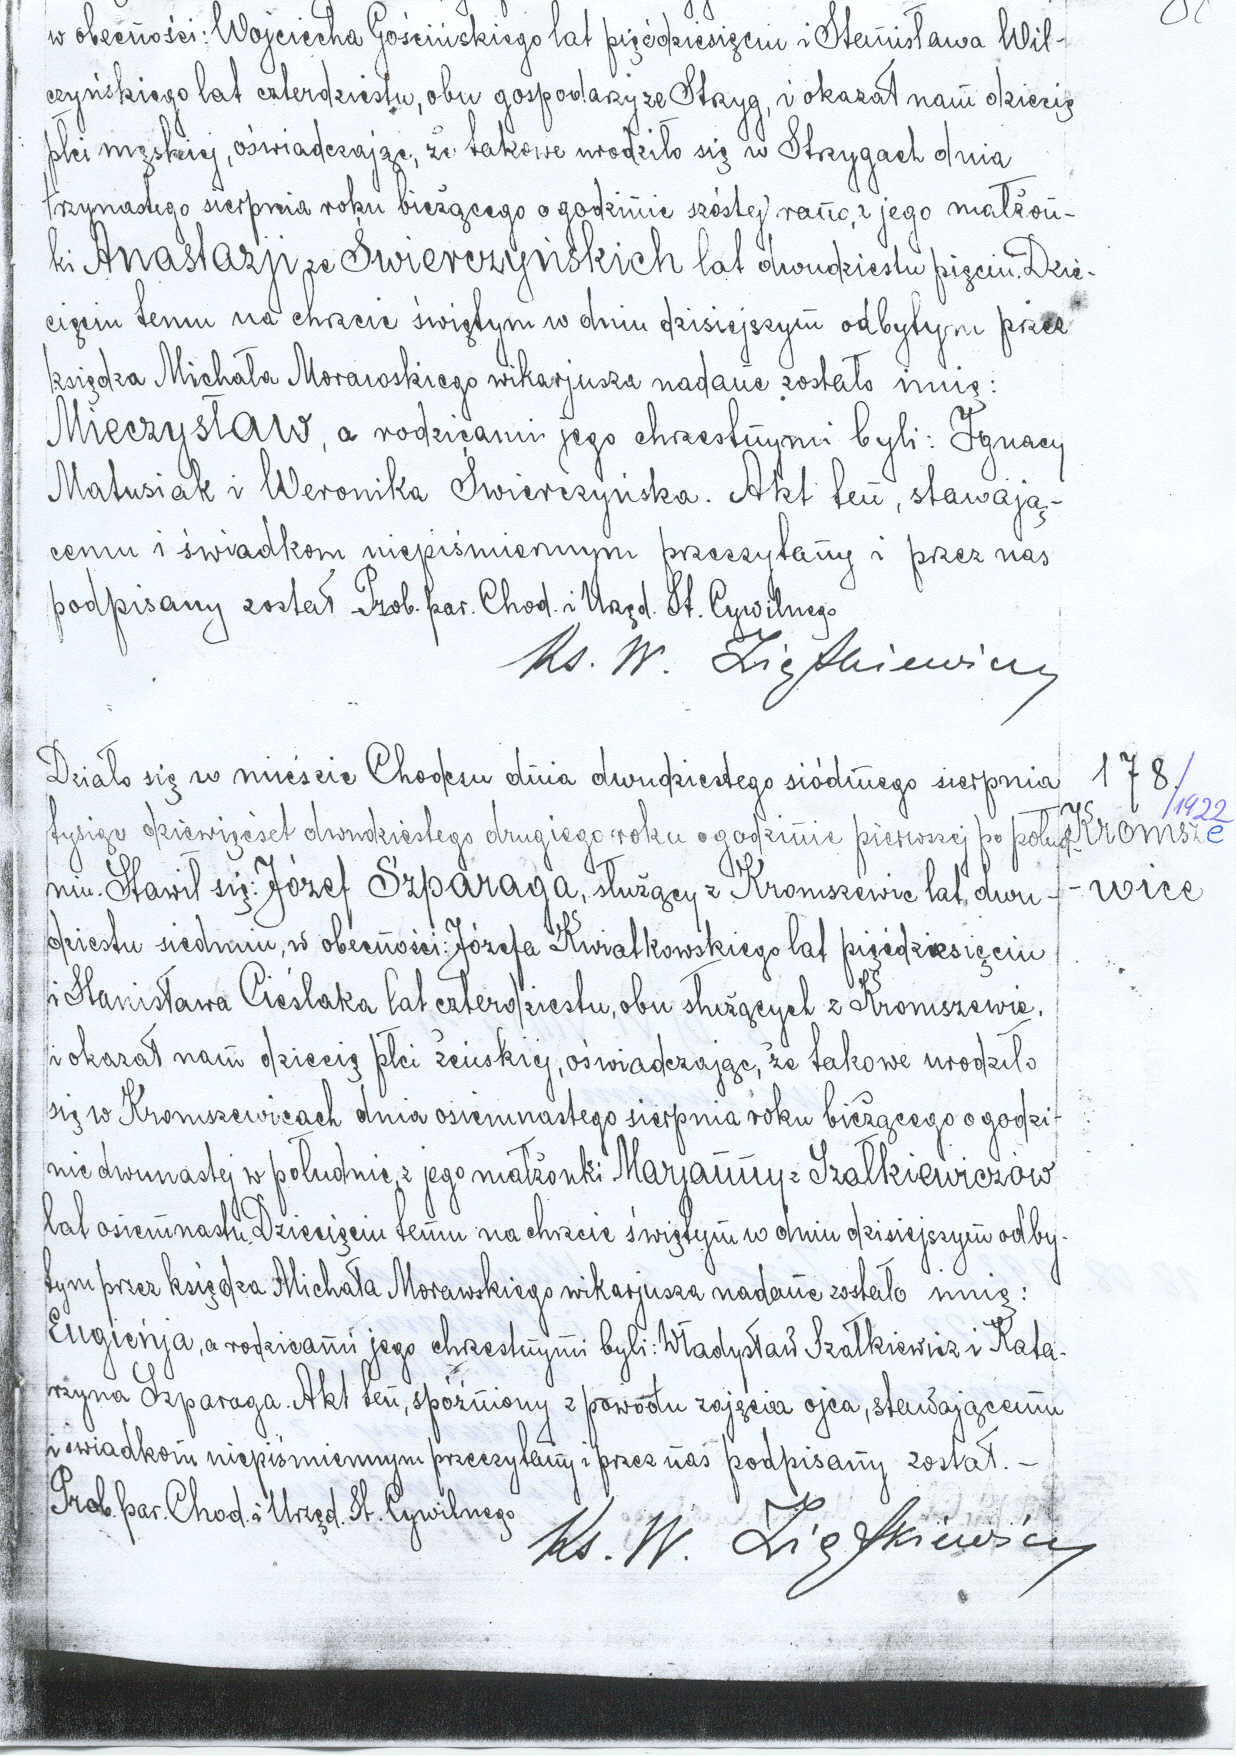 w obecności: Wojciecha Gościńskiego lat pięćdziesięciu i Stanisława Wil-
czyńskiego lat czterdziestu, obu gospodarzy ze Strzyg, i okazał nam dziecię
płci męskiej, oświadczając, że takowe urodziło się w Strzygach dnia
trzynastego sierpnia roku bieżącego o godzinie szóstej rano, z jego małżon-
ki Anastazji ze Świerczyńskich lat dwudziestu pięciu. Dzie-
cięciu temu na chrzcie świętym w dniu dzisiejszym odbytym przez
księdza Michała Morawskiego wikarjusza nadane zostało imię:
Mieczysław, a rodzicami jego chrzestnymi byli: Ignacy
Matusiak i Weronika Świerczyńska. Akt ten, stawają-
cemu i świadkom niepiśmiennym przeczytany i przez nas
podpisany został Prob. par. Chod. i Urzęd. St. Cywilnego
Ks. W. Ziętkiewicz
178/1922
Kromsze
-wice
Działo się w mieście Chodczu dnia dwudziestego siódmego sierpnia
tysiąc dziewięćset dwudziestego drugiego roku o godzinie pierwszej po połud-
niu. Stawił się: Józef Szparaga, służący z Kromszewic lat dwu-
dziestu siedmiu, w obecności: Józefa Kwiatkowskiego lat pięćdziesięciu
i Stanisława Cieślaka lat czterdziestu, obu służących z Kromszewic,
i okazał nam dziecię płci żeńskiej, oświadczając, że takowe urodziło
się w Kromszewicach dnia osiemnastego sierpnia roku bieżącego o godzi-
nie dwunastej w południe, z jego małżonki Marjanny z Szałkiewiczów
lat osiemnastu. Dziecięciu temu na chrzcie świętym w dniu dzisiejszym odby-
tym przez księdza Michała Morawskiego wikarjusza nadane zostało imię:
Eugienja, a rodzicami jego chrzestnymi byli: Władysław Szałkiewicz i Kata-
rzyna Szparaga. Akt ten, spóźniony z powodu zajęcia ojca, stawającemu
i świadkom niepiśmiennym przeczytany i przez nas podpisany został. -
Prob. par. Chod. i Urzęd. St. Cywilnego
Ks. W. Ziętkiewicz